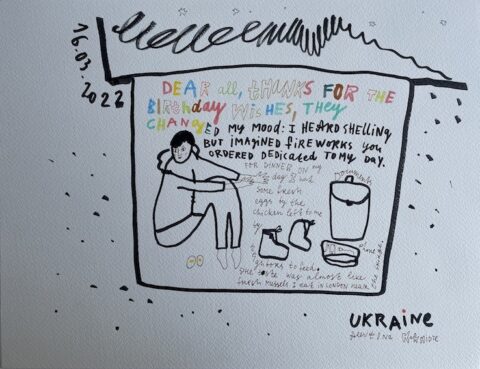 16.03.2022
DEAR all, thanks FOR THE
Birthday WisHes, They
CHANGED MY MOOD: I HEARD SHELLING
BUT IMAGINED FIREWORKS YOU
ORDERED DEDICATED TO MY DAY.
FOR DINNER ON my
day I had
some fresh
eggs by the
chicken left to me
by
to feed.
the taste was almost like
fresh mussels I eat in LONDON near
Documents
UKRAiNE